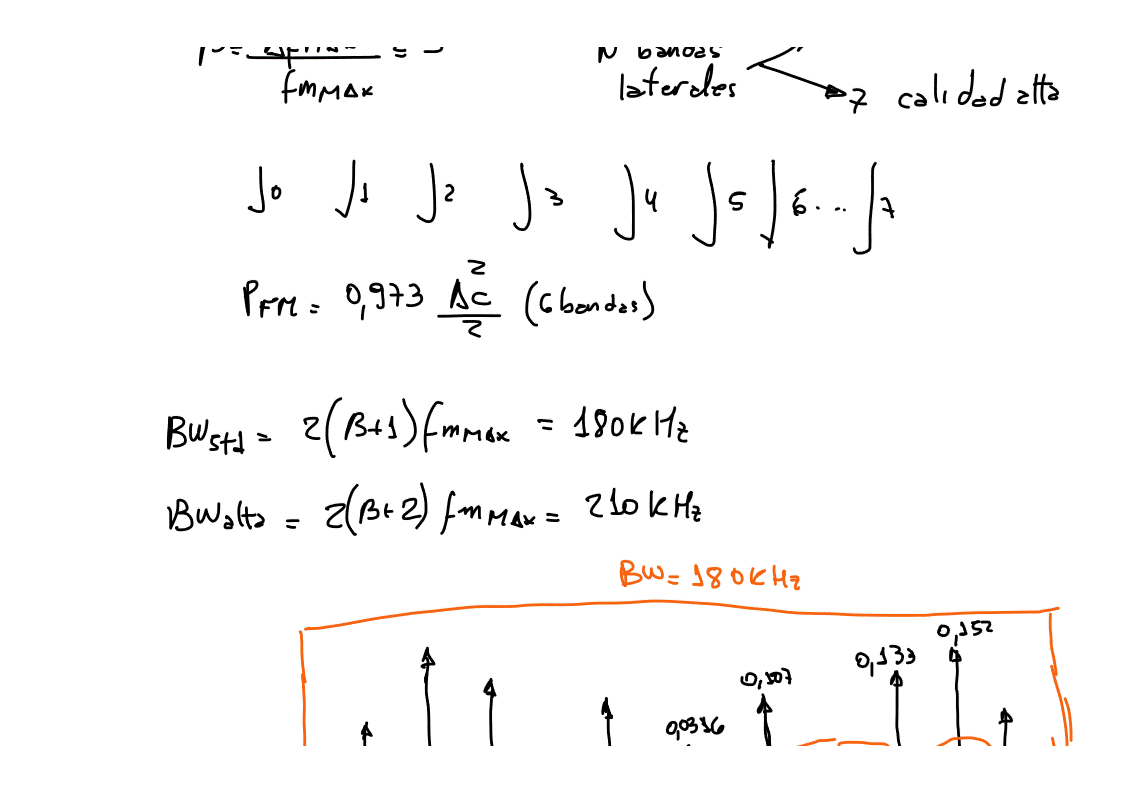 fmMAX
laterales
7 calidad alta
J0 J1 J2 J3 J4 J5 J6... J7
PFM = 0,973 Ac²/2 (6 bandas)
BWstd = 2(β+1) fmMAX = 180KHz
BWalta = 2(β+2) fmMAX = 210KHz
BW = 180KHz
0,152
0,133
0,107
0,0316